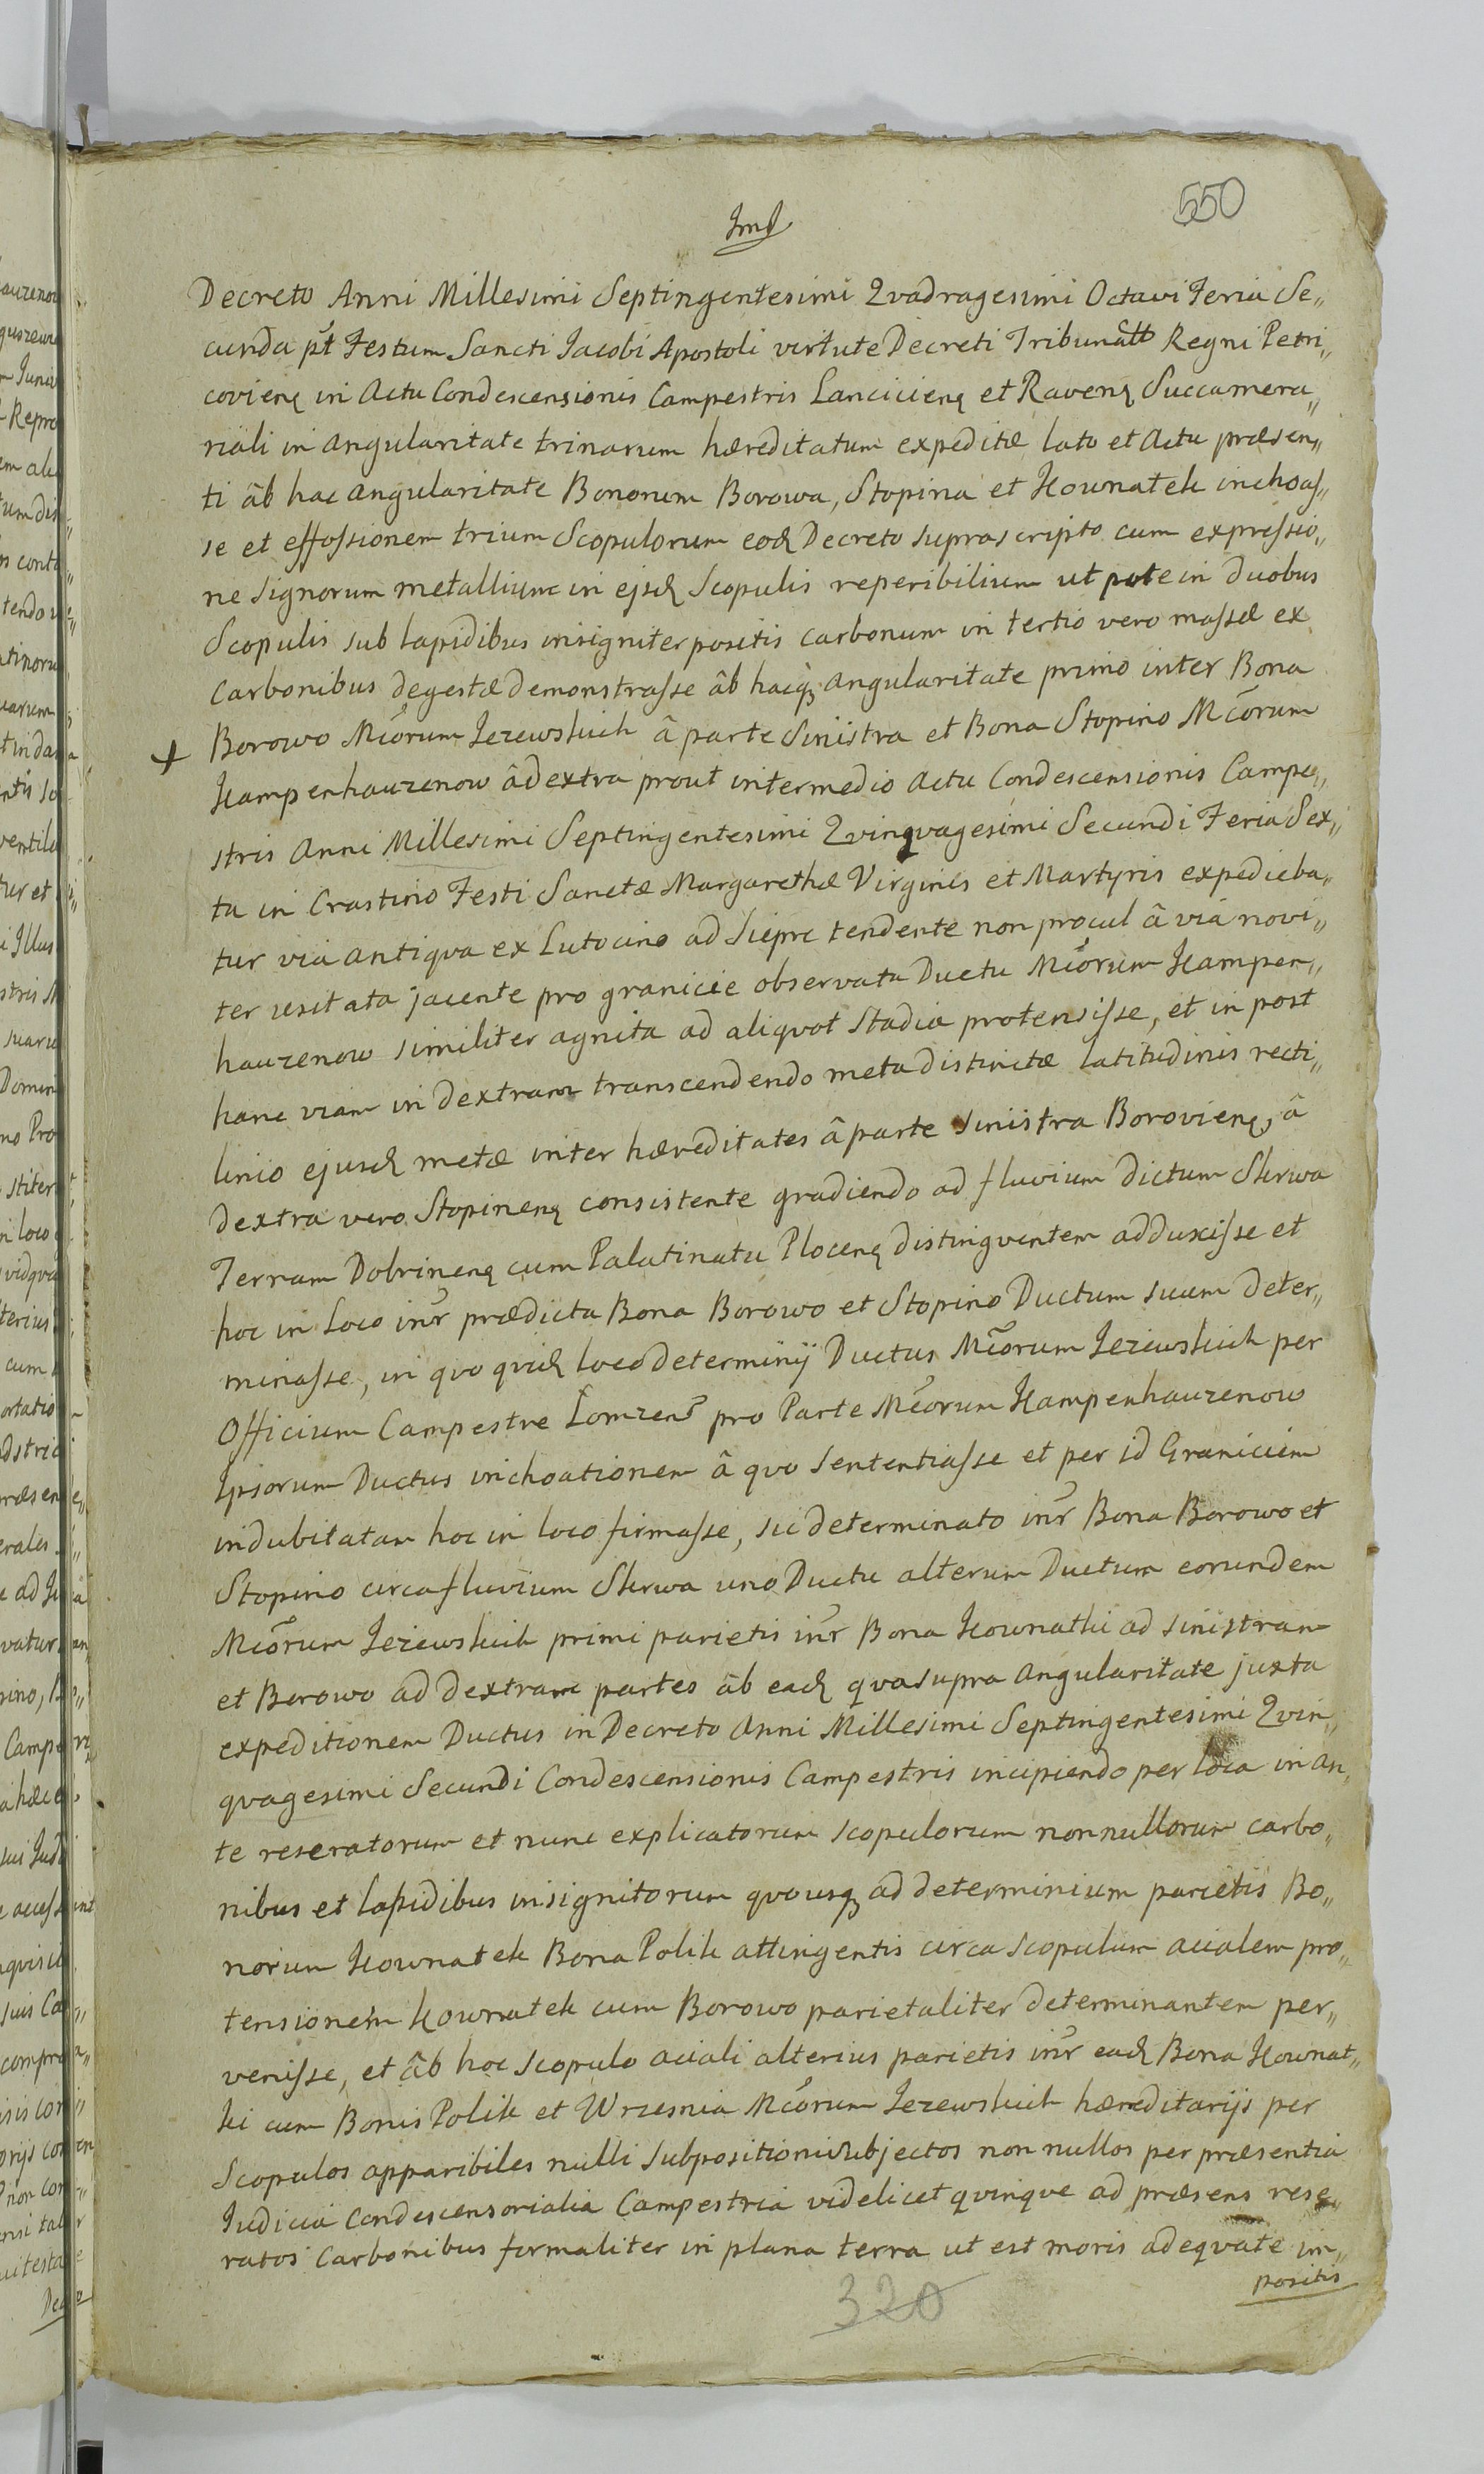 550
Decreto Anni Millesimi Septingentesimi Qvadragesimi Octavi Feria Se„
cunda pt̃ Festum Sancti Jacobi Apostoli virtute Decreti Tribunałł Regni Petri„
covienꝫ in Actu Condescensionis Campestris Lancicienꝫ et Ravenꝫ Succamera„
riali in angularitate trinarum hæreditatum expeditæ lato et Actu præsen„
ti âb hac angularitate Bonorum Borowa, Stopina et Kownatek inchoas„
se et effossionem trium Scopulorum eodꝫ Decreto suprascripto cum expressio„
ne signorum metallium in ejsdꝫ Scopulis reperibilium ut pote in duobus
Scopulis sub lapidibus insigniter positis carbonum in tertio vero massæ ex
Carbonibus degestæ demonstrasse âb hacqꝫ angularitate primo inter Bona
+ Borowo Mc̃orum Jezewskich â parte Sinistra et Bona Stopino Mc̃orum
Kampenhauzenow â dextra prout intermedio Actu Condescensionis Campe„
stris Anni Millesimi Septingentesimi Qvinqvagesimi Secundi Feria Sex„
ta in Crastino Festi Sanctæ Margarethæ Virginis et Martyris expedieba„
tur via antiqva ex Lutocino ad Siepre tendente non procul â via novi„
ter usitata jacente pro granicie observata Ductu Mc̃orum Kampen„
hauzenow similiter agnita ad aliqvot Stadia protensisse, et in post
hanc viam in dextram transcendendo meta distinctæ latitudinis recti„
linio ejusdꝫ metæ inter hæreditates â parte sinistra Borovienꝫ, â
dextra vero Stopinenꝫ consistente gradiendo ad fluvium dictum Skrwa
Terram Dobrinenꝫ cum Palatinatu Plocenꝫ distingventem adduxisse et
hoc in Loco inr̃ prædicta Bona Borowo et Stopino Ductum suum deter„
minasse, in qvo qvidꝫ loco determinij Ductus Mc̃orum Jeziewskich per
Officium Campestre Łomzens̃ pro Parte Mc̃orum Kampenhauzenow
Ipsorum Ductus inchoationem â qvo sententiasse et per id Graniciem
indubitatam hoc in loco firmasse, sic determinato inr̃ Bona Borowo et
Stopino circa fluvium Skrwa uno Ductu alterum Ductum eorundem
Mc̃orum Jeziewskich primi parietis inr̃ Bona Kownatki ad sinistram
et Borowo ad dextram partes âb eadꝫ qva supra angularitate juxta
expeditionem Ductus in Decreto Anni Millesimi Septingentesimi Qvin„
qvagesimi Secundi Condescensionis Campestris incipiendo per loca in an„
te reseratorum et nunc explicatorum scopulorum nonnullorum carbo„
nibus et lapidibus insignitorum qvousqꝫ ad determinium parietis Bo„
norum Kownatek Bona Polik attingentis circa scopulum acialem pro„
tensionem Kownatek cum Borowo parietaliter determinantem per„
venisse, et âb hoc scopulo aciali alterius parietis inr̃ eadꝫ Bona Kownat„
ki cum Bonis Polik et Wrzesnia Mc̃orum Jezewskich hæreditarijs per
Scopulos apparibiles nulli subpositioni subjectos non nullos per præsentia
Iudicia Condescensorialia Campestria videlicet qvinqve ad præsens rese„
ratos Carbonibus formaliter in plana terra ut est moris adeqvate im„
positis
320